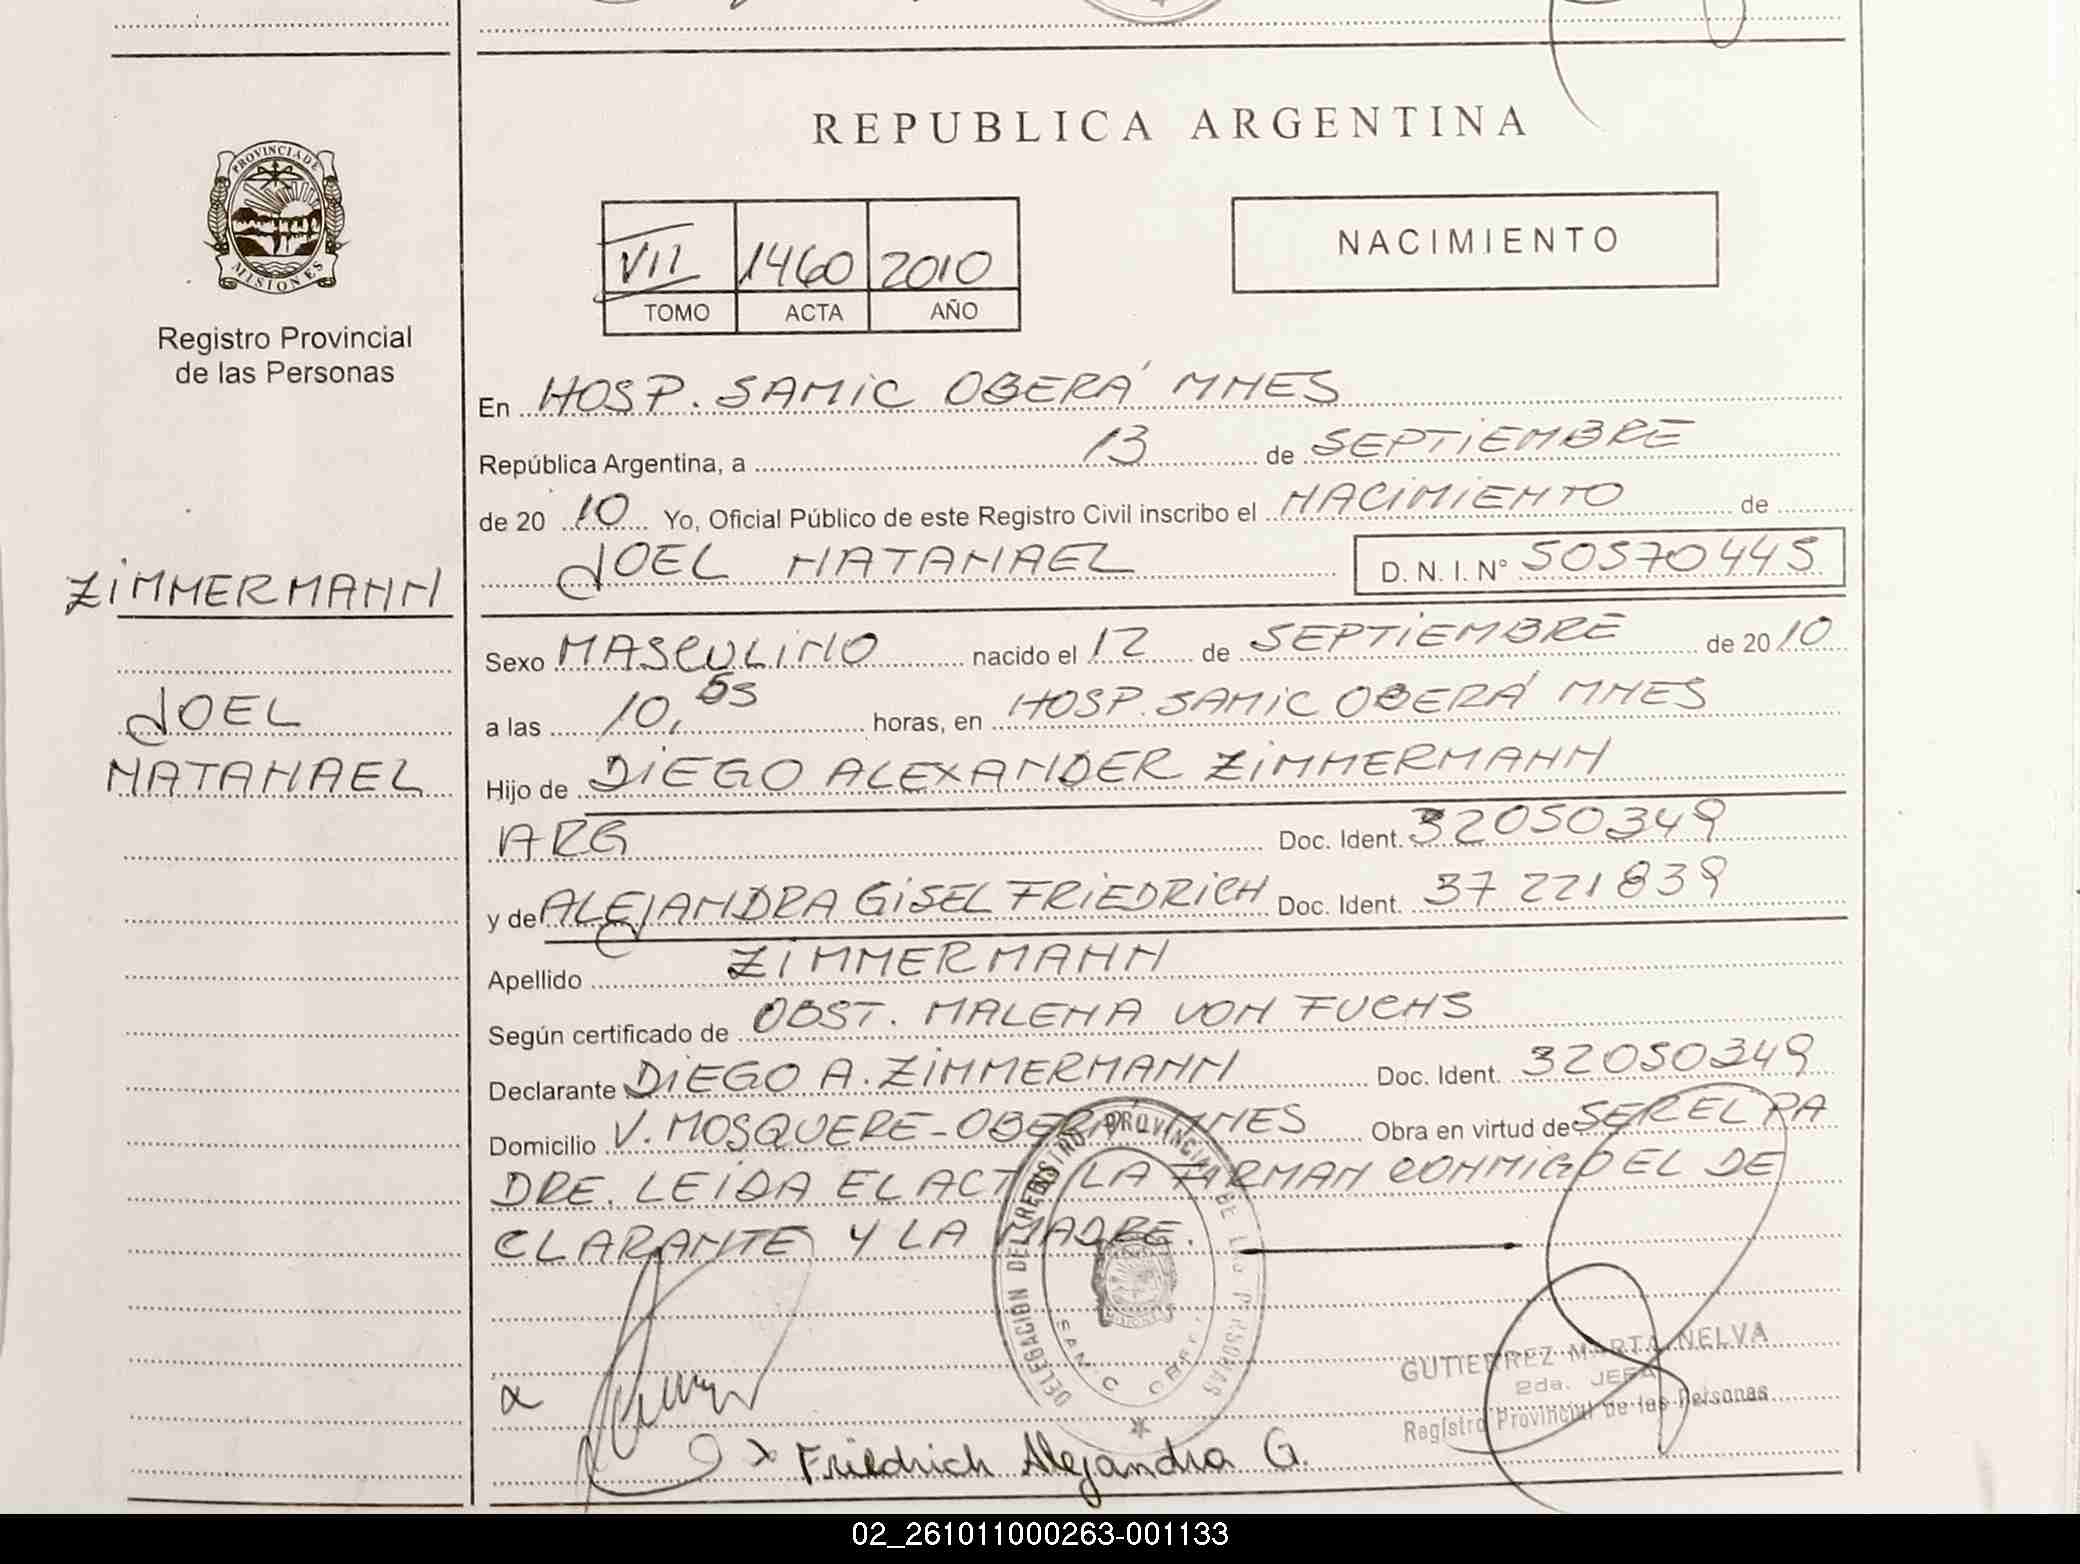 REPUBLICA ARGENTINA
PROVINCIA DE
MISIONES
Registro Provincial
de las Personas
VII 1460 2010
TOMO ACTA AÑO
NACIMIENTO
En HOSP. SAMIC OBERÁ MNES
República Argentina, a 13 de SEPTIEMBRE
de 2010 Yo, Oficial Público de este Registro Civil inscribo el NACIMIENTO de
JOEL NATANAEL D. N. I. N° 50570445
ZIMMERMANN
JOEL
NATANAEL
Sexo MASCULINO nacido el 12 de SEPTIEMBRE de 2010
a las 10,55 horas, en HOSP. SAMIC OBERÁ MNES
Hijo de DIEGO ALEXANDER ZIMMERMANN
ARG Doc. Ident. 32050349
y de ALEJANDRA GISEL FRIEDRICH Doc. Ident. 37 221839
Apellido ZIMMERMANN
Según certificado de OBST. MALENA VON FUCHS
Declarante DIEGO A. ZIMMERMANN Doc. Ident. 32050349
Domicilio V. MOSQUERE - OBERÁ MNES Obra en virtud de SER EL PA
DRE. LEIDA EL ACTA LA FIRMAN CONMIGO EL DE
CLARANTE Y LA MADRE.
DELEGACION DEL REGISTRO PROVINCIAL DE LAS PERSONAS
MISIONES
GUTIERREZ MARTA NELVA
2da. JEFA
Registro Provincial de las Personas
x Friedrich Alejandra G.
02_261011000263-001133